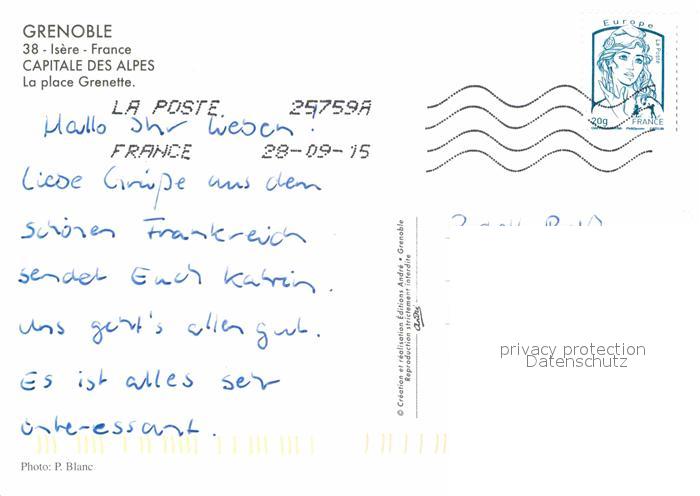 GRENOBLE
38 - Isère - France
CAPITALE DES ALPES
La place Grenette.
Europe
La Poste
20g FRANCE
LA POSTE 25759A
Hallo Ihr Lieben!
FRANCE 28-09-15
Liebe Grüße aus dem
schönen Frankreich
sendet Euch Katrin.
Uns geht's allen gut.
Es ist alles sehr
interessant.
© Création et réalisation Editions André • Grenoble
Reproduction strictement interdite
André
privacy protection
Datenschutz
Photo: P. Blanc